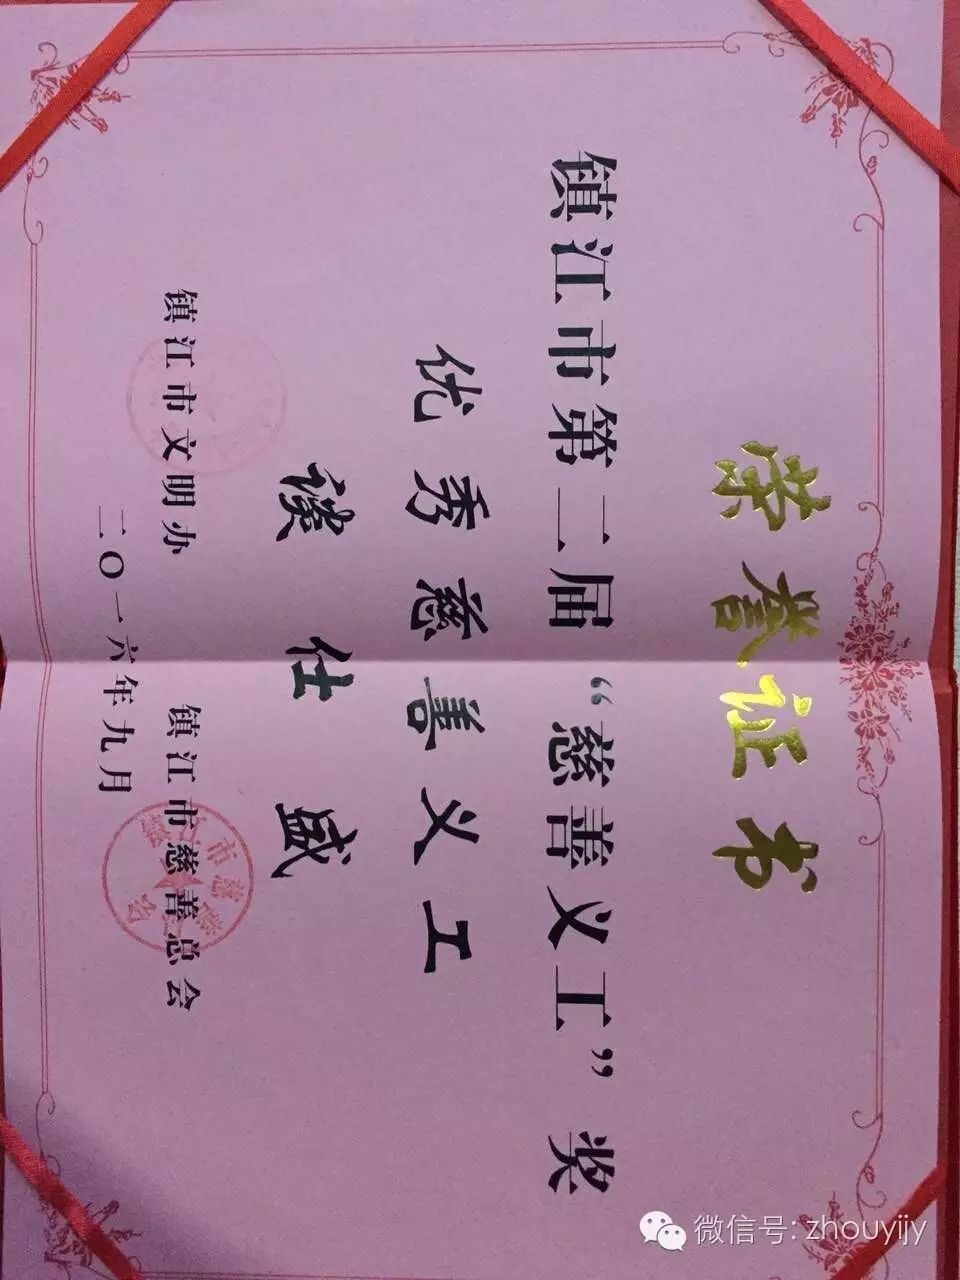 荣誉证书
镇江市第二届“慈善义工”奖
优秀慈善义工
谈仕盛
镇江市文明办 镇江市慈善总会
二〇一六年九月
微信号: zhouyijy